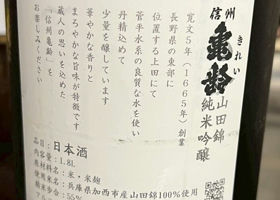 信州
亀齢
きれい
山田錦
純米吟醸
寛文5年(1665年)創業
長野県の東部に
位置する上田にて
菅平水系の良質な水を使い
丹精込めて
少量を醸しています
華やかな香りと
まろやかな旨味が特徴です
蔵人の思いを込めた
「信州亀齢」を
お楽しみください
品目:日本酒
内容量:1.8L
原材料名:米・米麹
使用米:兵庫県加西市産山田錦100%使用
精米歩合:55%